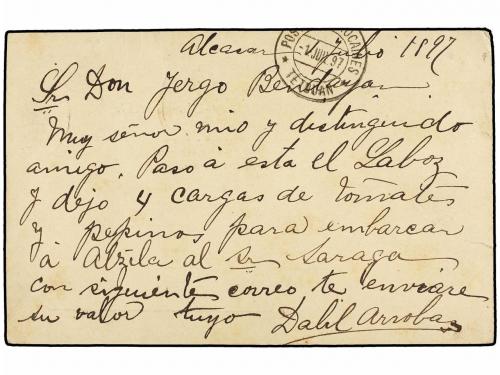 Alcazar Julio 1897
POSTES MAROCAINES
1 JUIL. 97
TETAUAN
Sr. Don Jergo Bendayan
Muy señor mio y distinguido
amigo, Paso à esta el Laboz
y dejo 4 cargas de tomates
y pepinos para embarcar
à Alzila al Sr Saraga
con siguiente correo te enviare
su valor tuyo Dalil Arrobas